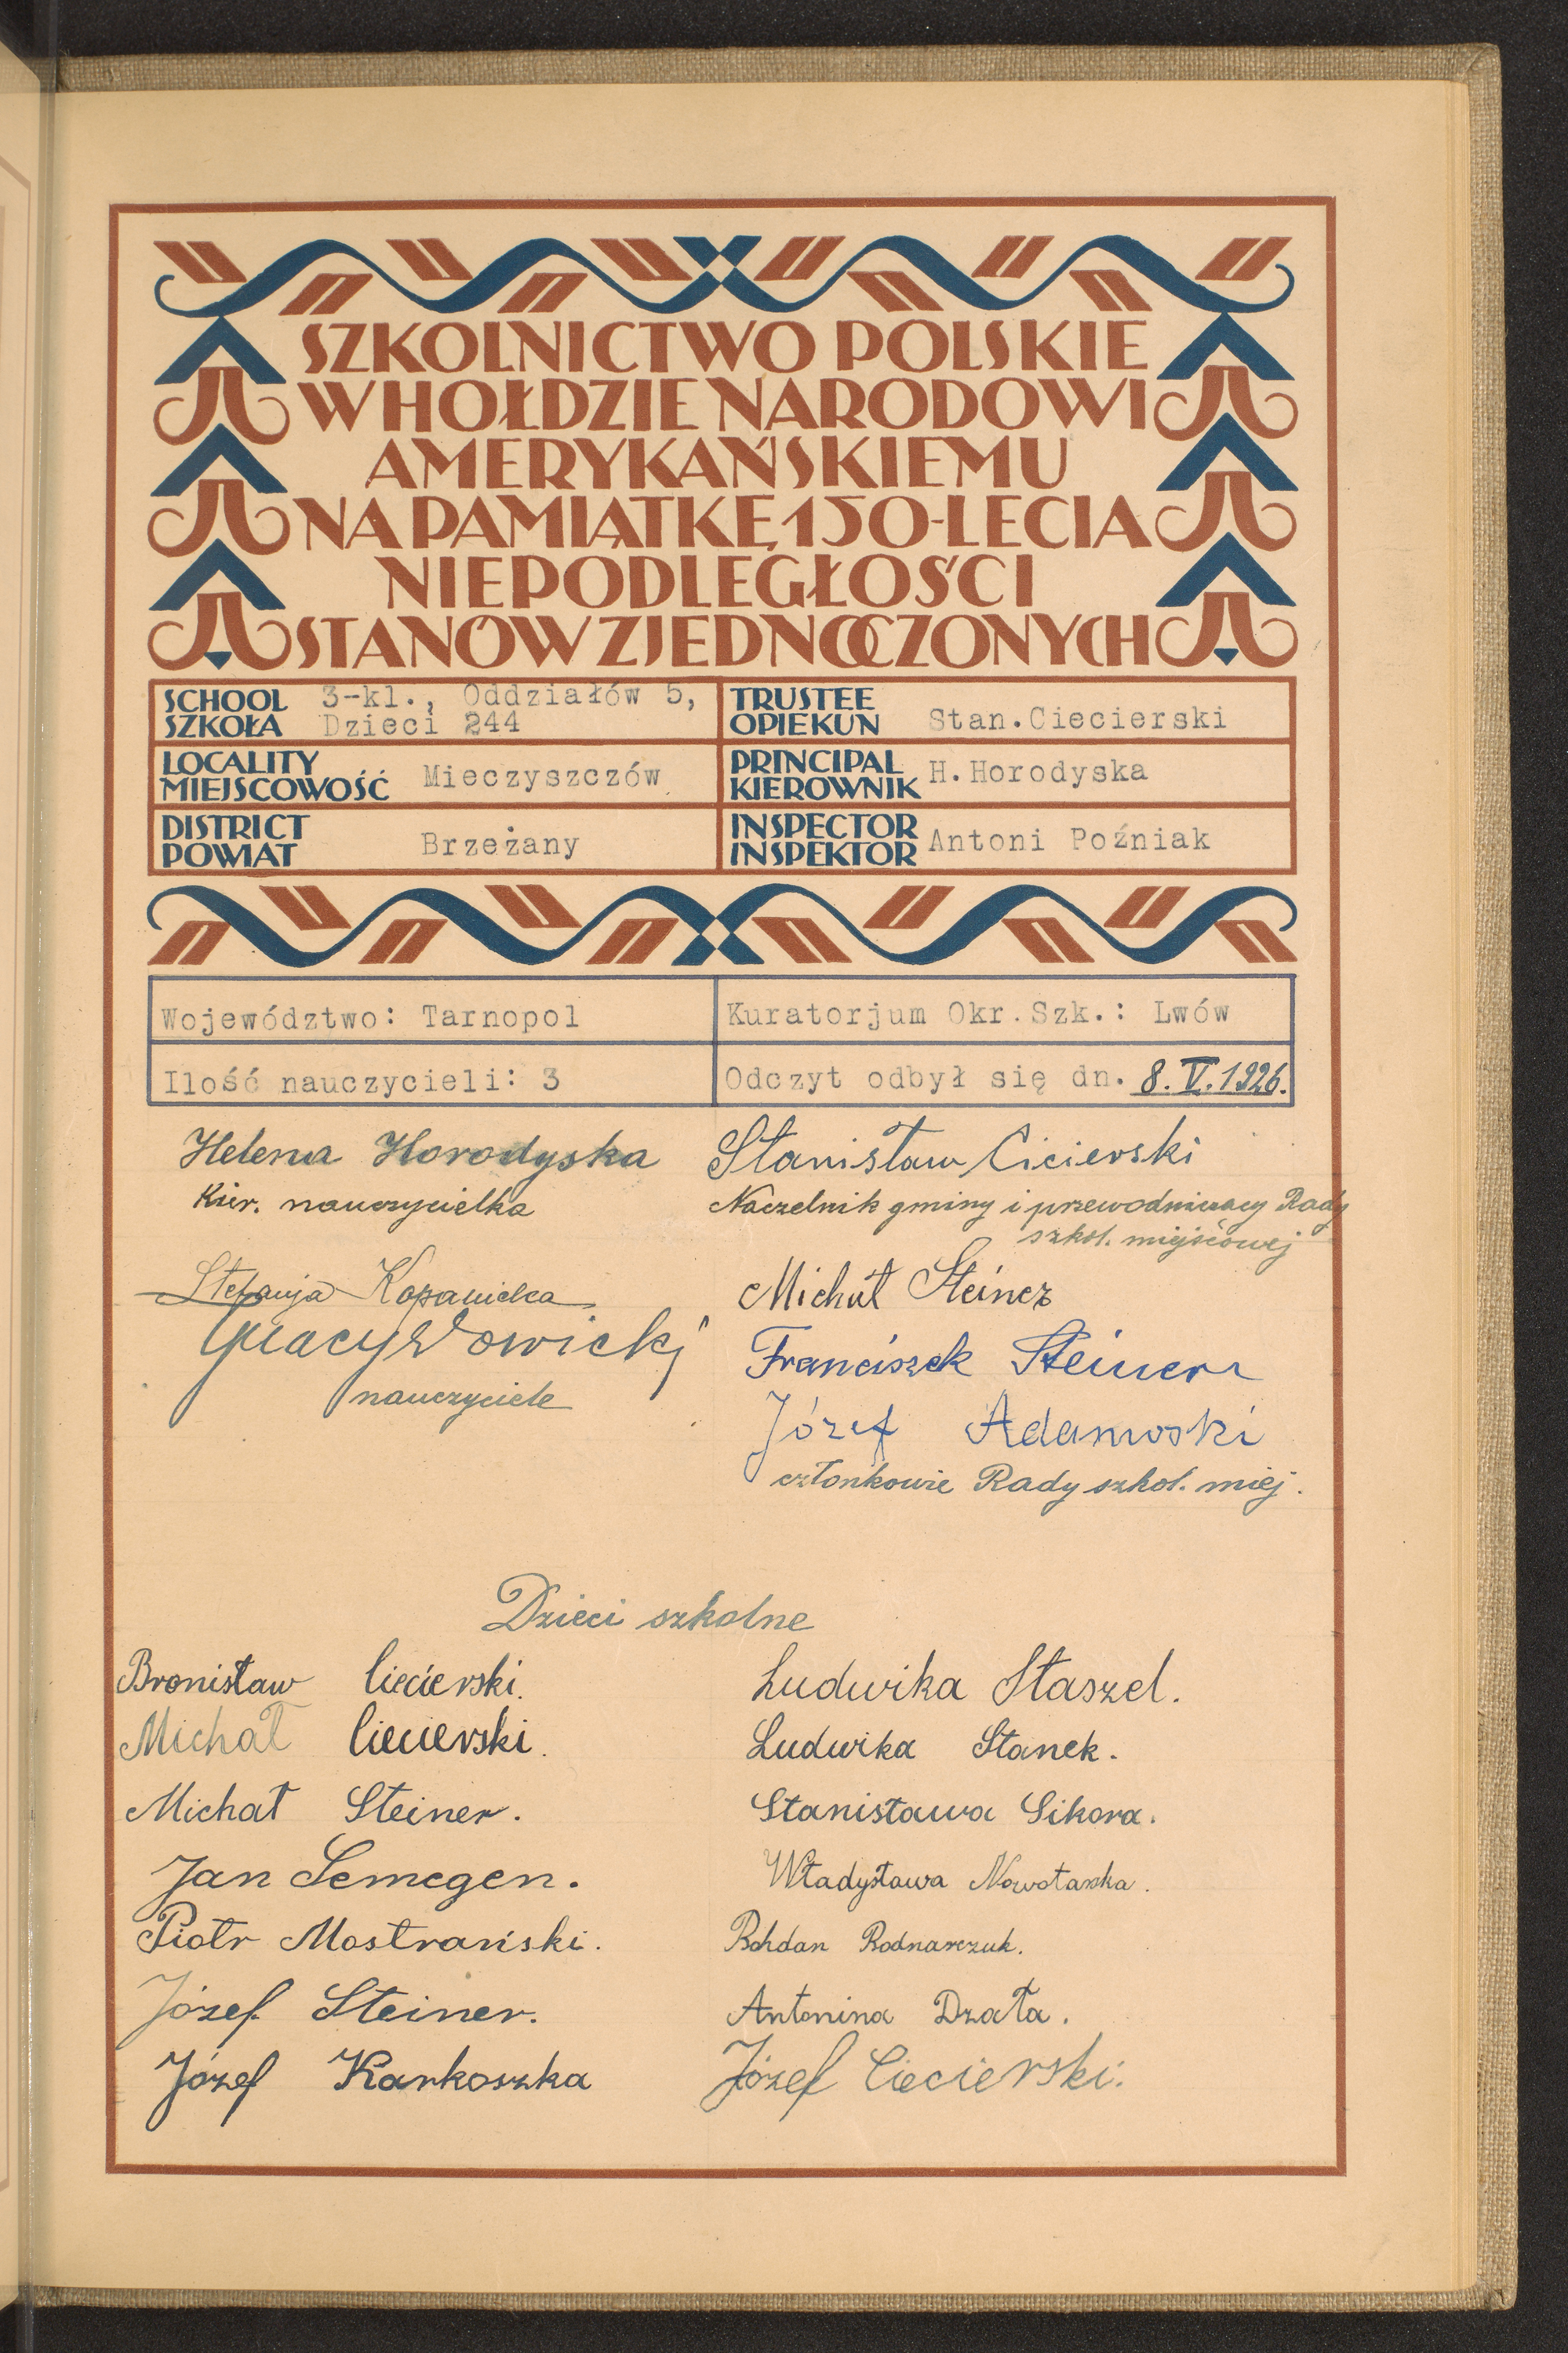 SZKOLNICTWO POLSKIE
W HOŁDZIE NARODOWI
AMERYKAŃSKIEMU
NA PAMIĄTKĘ 150-LECIA
NIEPODLEGŁOŚCI
STANÓW ZJEDNOCZONYCH
SCHOOL
SZKOŁA
3-kl., Oddziałów 5,
Dzieci 244
TRUSTEE
OPIEKUN
Stan.Ciecierski
LOCALITY
MIEJSCOWOŚĆ
Mieczyszczów
PRINCIPAL
KIEROWNIK
H.Horodyska
DISTRICT
POWIAT
Brzeżany
INSPECTOR
INSPEKTOR
Antoni Poźniak
Województwo: Tarnopol
Kuratorjum Okr.Szk.: Lwów
Ilość nauczycieli: 3
Odczyt odbył się dn. 8.V.1926.
Helena Horodyska
Kier. nauczycielka
Stefanja
nauczyciele
Stanisław Cicierski
Naczelnik gminy i przewodniczący Rady
szkol. miejscowej
Michał
Franciszek Steiner
Józef Adamoski
członkowie Rady szkol. miej.
Dzieci szkolne
Bronisław Ciecierski.
Michał Ciecierski.
Michał Steiner.
Jan Semegen.
Piotr Mostrański.
Józef Steiner.
Józef Karkoszka
Ludwika Staszel.
Ludwika Stanek.
Stanisława Sikora.
Władysława Nowotarska.
Bohdan Bodnarczuk.
Antonina Dzała.
Józef Ciecierski.